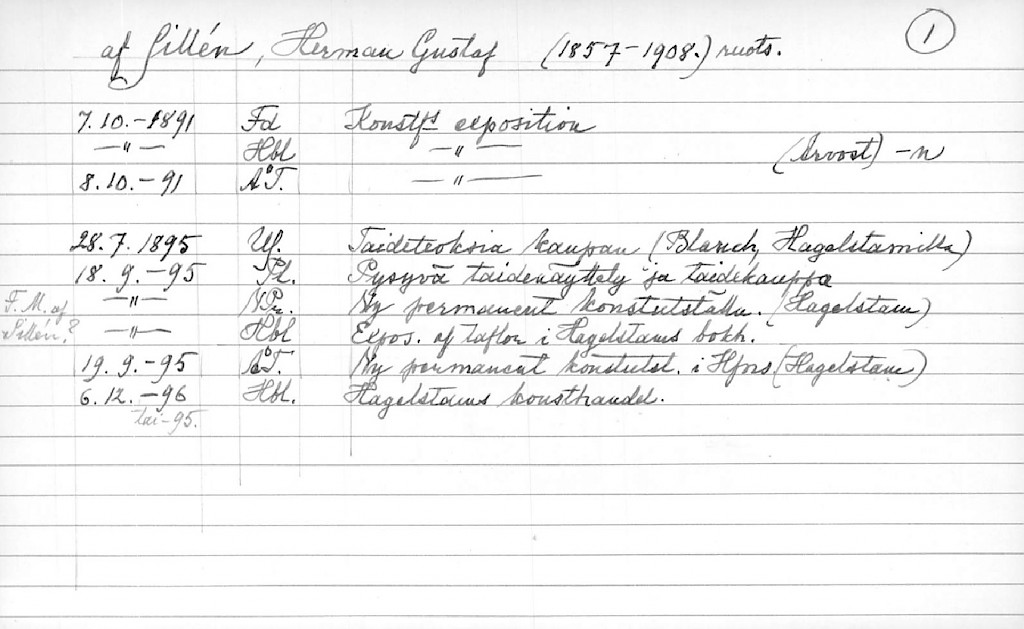 af Sillén, Herman Gustaf (1857-1908.) ruots. 1
7.10.-1891 Fd Konstfs exposition
—"— Hbl —"— (Arvost) -n
8.10.-91 ÅT. —"—
28.7.1895 Uf. Taideteoksia kaupan (Blanch, Hagelstamilla)
18.9.-95 Pl. Pysyvä taidenäyttely ja taidekauppa
F.M. af —"— NPr. Ny permanent konstutställn. (Hagelstam)
Sillén? —"— Hbl Expos. af taflor i Hagelstams bokh.
19.9.-95 ÅT. Ny permanent konstutst. i Hfors (Hagelstam)
6.12.-96 Hbl. Hagelstams konsthandel.
tai -95.